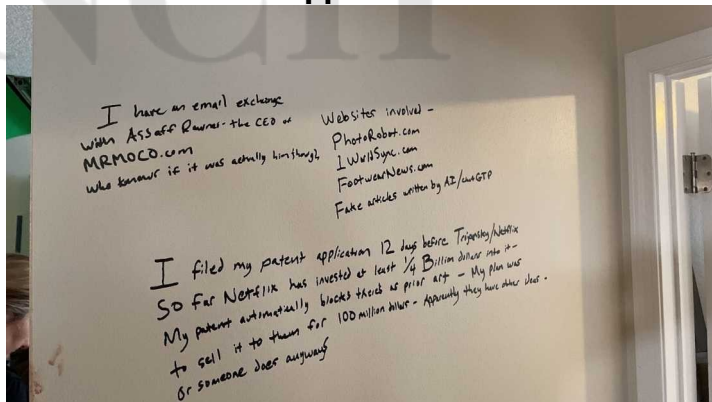 I have an email exchange
with Assaff Rawner - the CEO of
MRMOCO.com
who knows if it was actually him though,
Websites involved -
PhotoRobot.com
1WorldSync.com
FootwearNews.com
Fake articles written by AI/chatGTP
I filed my patent application 12 days before Trojansky/Netflix
So far Netflix has invested at least 1/4 Billion dollars into it -
My patent automatically blocks theirs as prior art - My plan was
to sell it to them for 100 million dollars - Apparently they have other ideas -
or someone does anyways